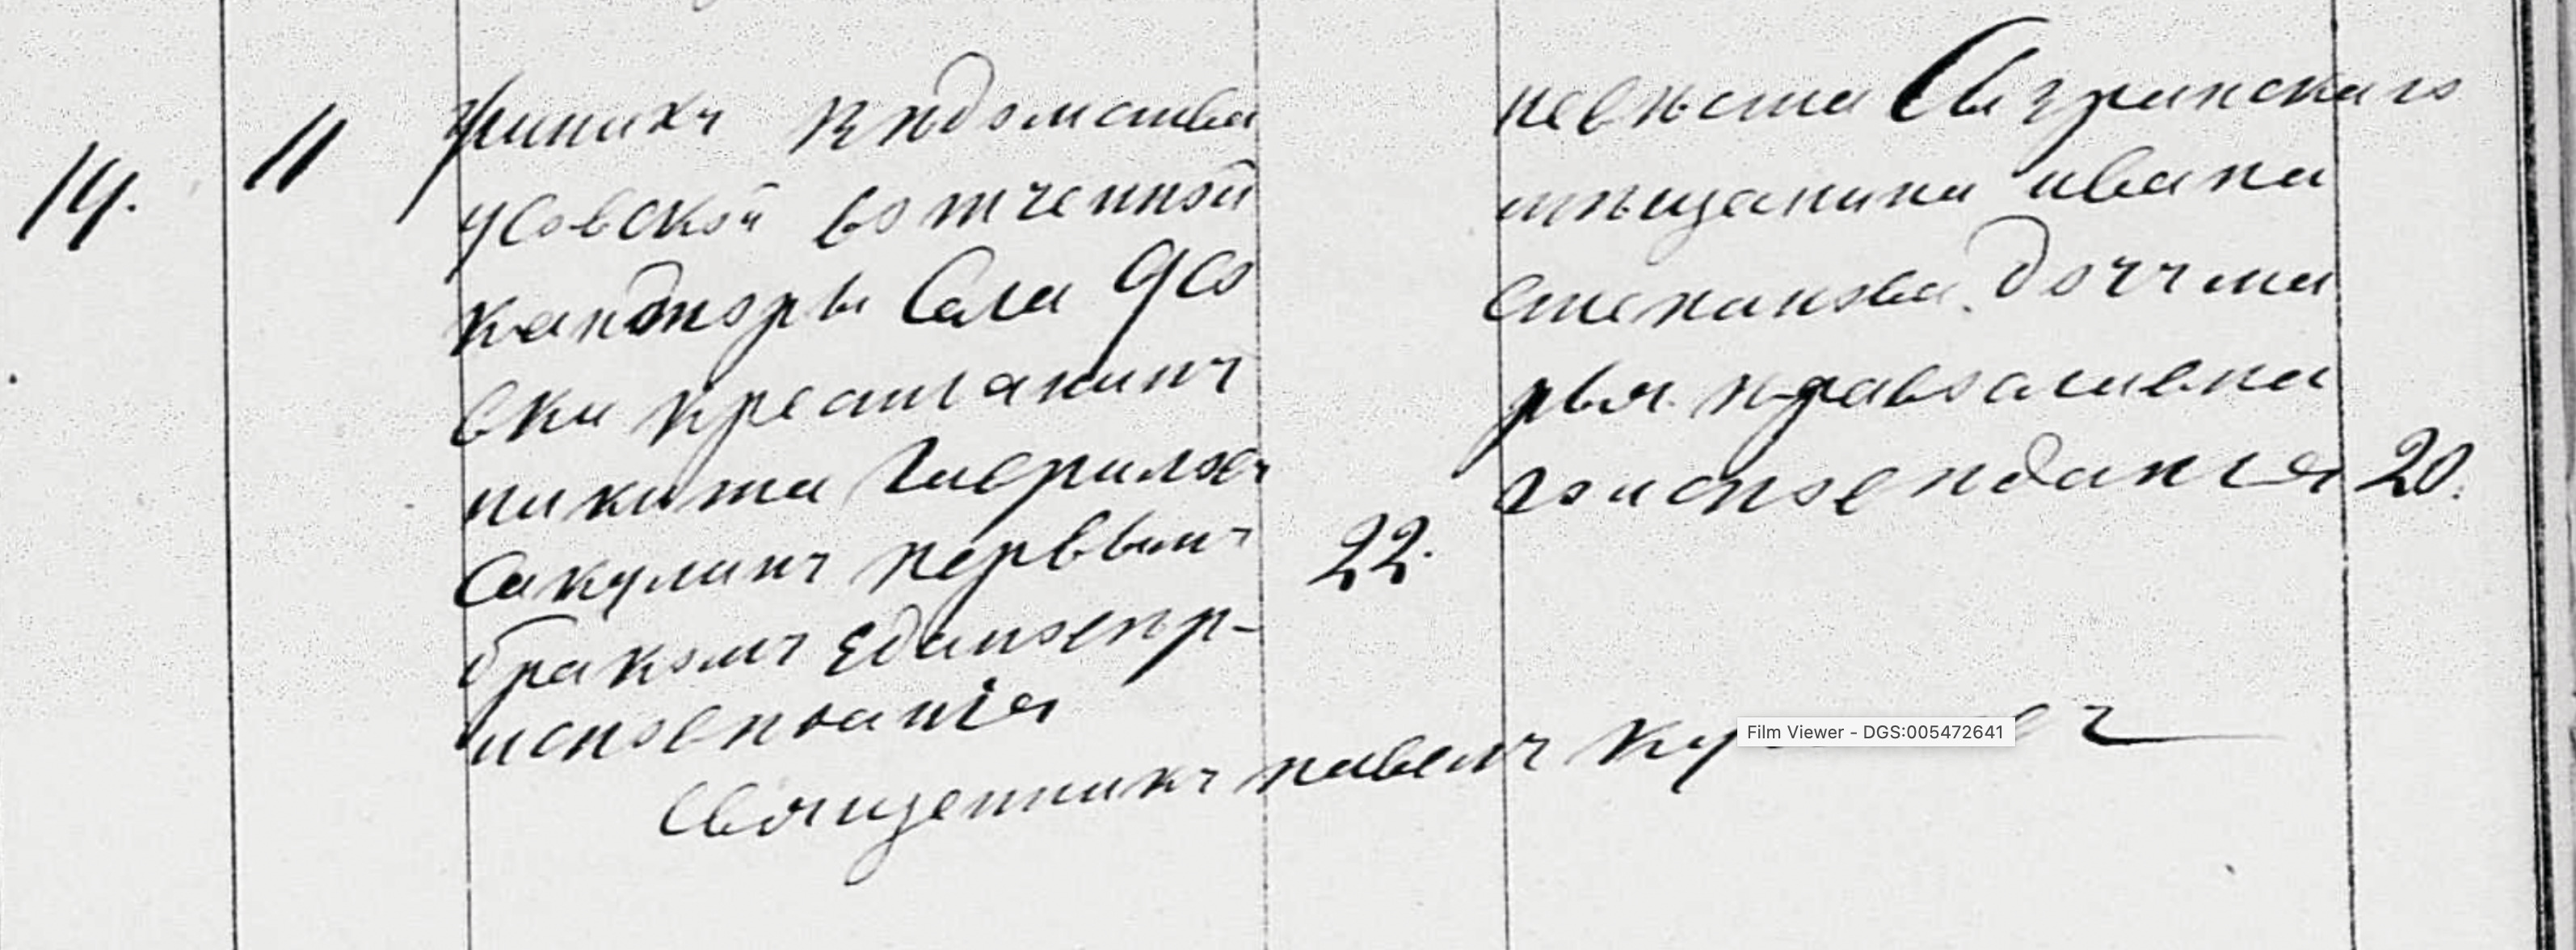 14.
11
жинихъ вѣдомства
усовской вотченной
канторы Села Усо
вки крестьанинъ
никита Гавриловъ
Сакулинъ первымъ
бракомъ Единовѣр-
исповѣданія
22.
невѣста Сызранскаго
мѣщанина ивана
Степанова дочь ма
рья православна
го исповѣданія
20.
Священникъ павелъ
Film Viewer - DGS:005472641